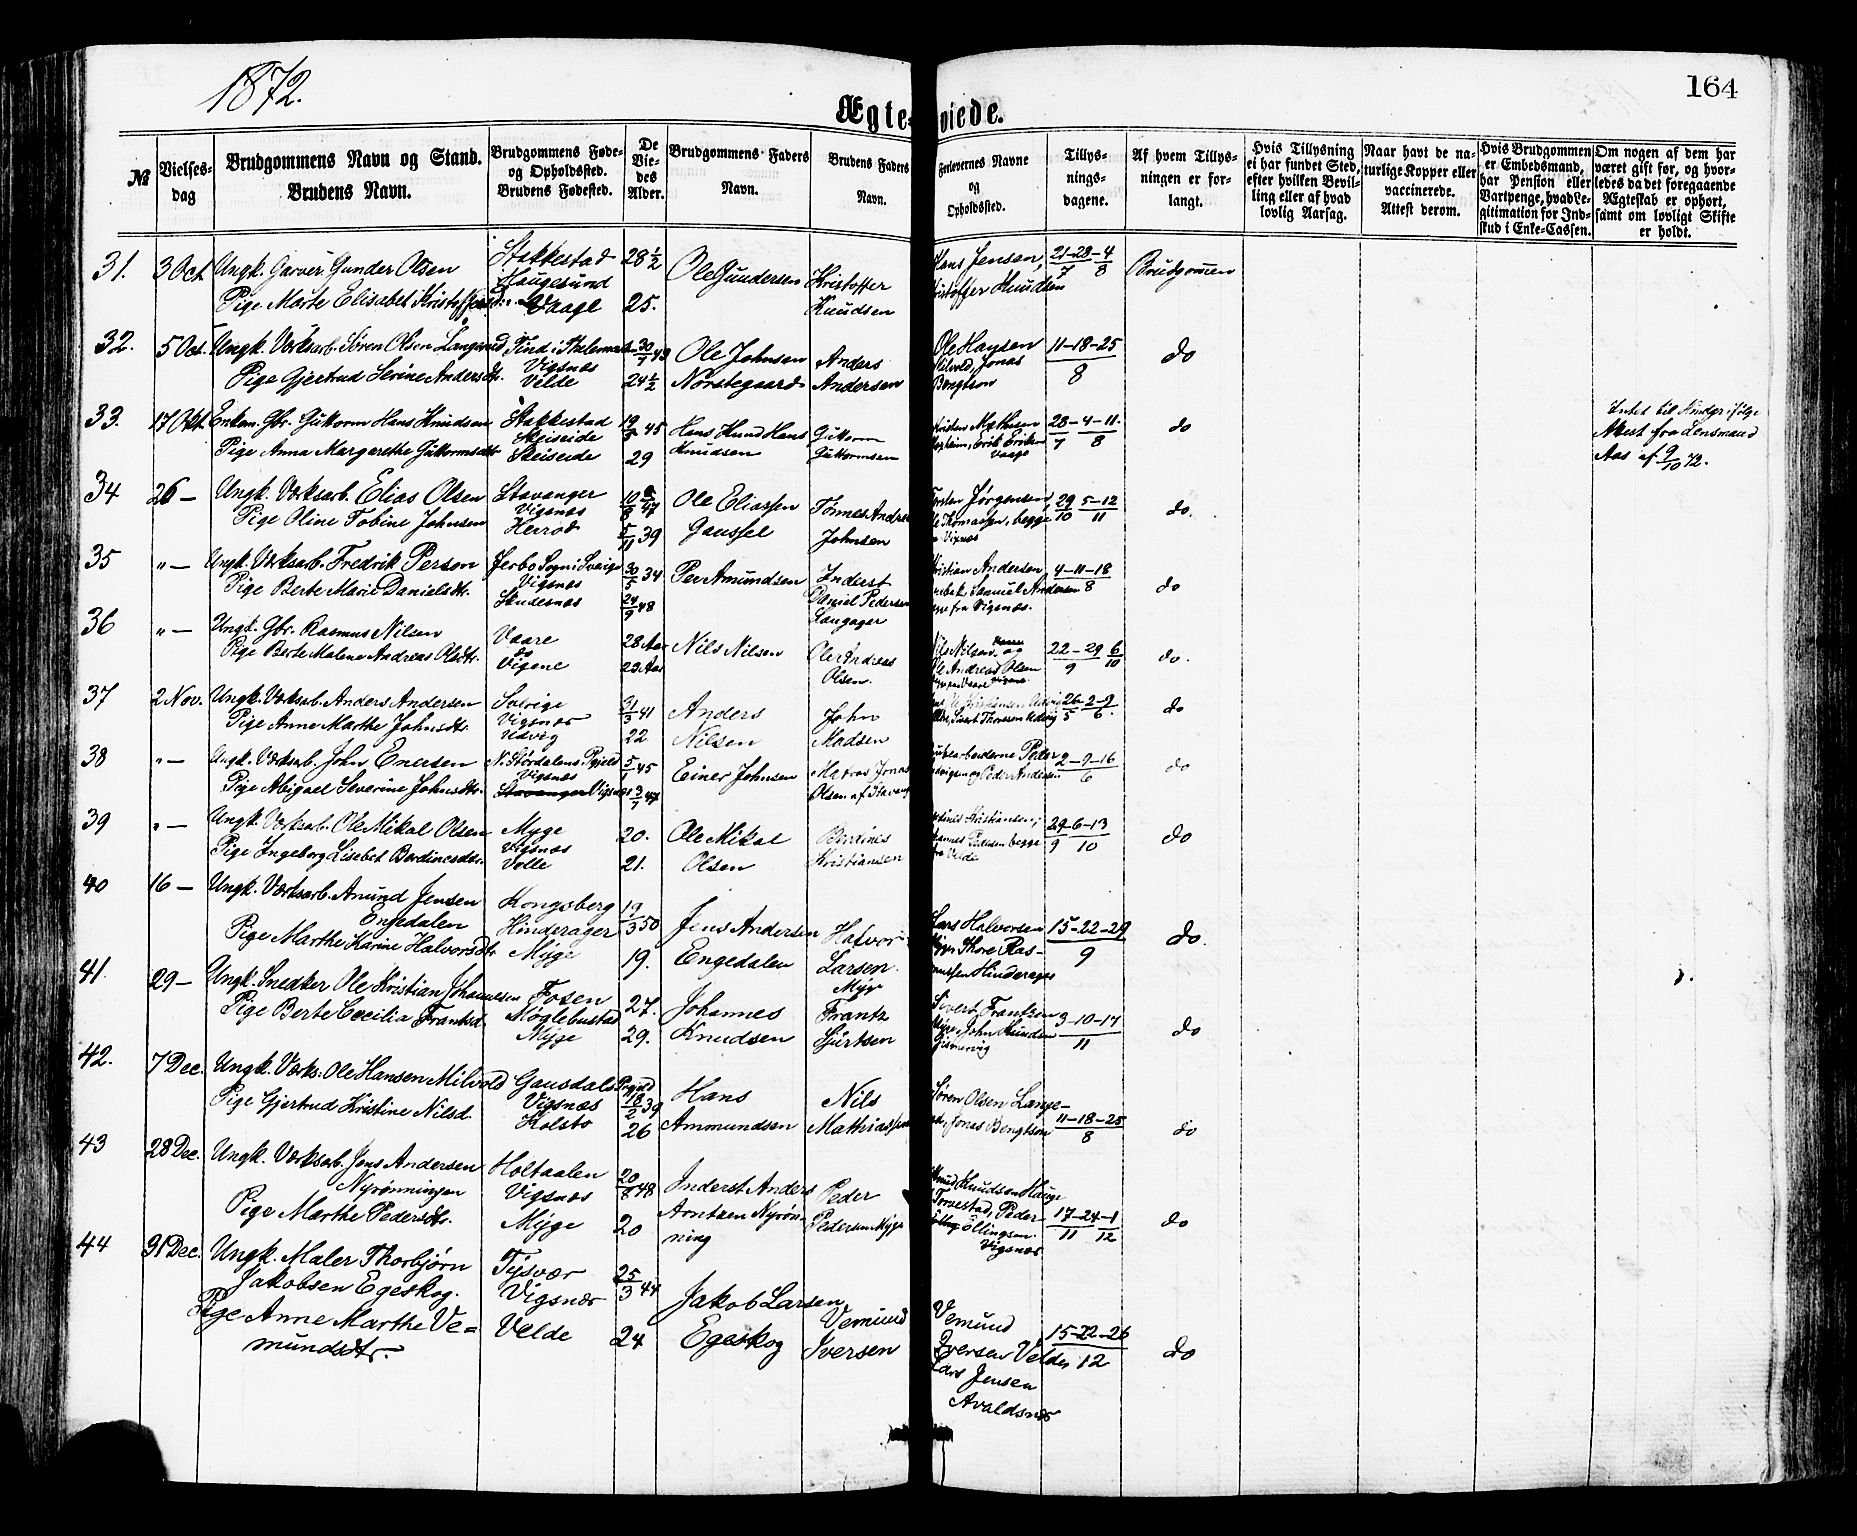 1872.
164
Ægte- viede.
№
Vielses-
dag
Brudgommens Navn og Stand.
Brudens Navn.
Brudgommens Føde-
og Opholdssted.
Brudens Fødested.
De
Vie-
des
Alder.
Brudgommens Faders
Navn.
Brudens Faders
Navn.
Forlovernes Navne
og
Opholdssted.
Tillys-
nings-
dagene.
Af hvem Tillys-
ningen er for-
langt.
Hvis Tillysning
ei har fundet Sted,
efter hvilken Bevil-
ling eller af hvad
lovlig Aarsag.
Naar havt de na-
turlige Kopper eller
vaccinerede.
Attest derom.
Hvis Brudgommen
er Embedsmand,
har Pension eller
Vartpenge, hvad Le-
gitimation for Ind-
skud i Enke-Cassen.
Om nogen af dem har
været gift før, og hvor-
ledes da det foregaaende
Ægteskab er ophørt,
samt om lovligt Skifte
er holdt.
31. 3 Oct. Ungk. Garver Gunder Olsen
Pige Marte Elisabet
Stakkestad
Haugesund
Vaage
28 1/2
25.
Ole Gundersen
Kristoffer
Knudsen
Hans Jensen,
Kristoffer Knudsen
21-28/7 - 4/8
Brudgommen
32. 5 Oct. Ungk. Værksarb. Søren Olsen
Pige Gjertrud Serine Andersdtr.
Vigsnæs
Velde
24 1/2
Ole Johnsen
Nørstegaard
Anders
Andersen
Ole Hansen
Milvold, Jonas
Bengtson
11-18-25/8
do
33. 17 Okt. Enkem. Gbr. Guttorm Hans Knudsen
Pige Anna Margarethe Guttormsdtr
Stakkestad
Skeiseide
Skeiseide
45
29
Hans Knud Hans
Knudsen
Guttorm
Guttormsen
28/7 - 4-11/8
do
Attest fra Lensmand
Aas af 9/10 72.
34 26 — Ungk. Værksarb. Elias Olsen
Pige Oline Tobine Johnsen
Stavanger
Vigsnæs
47
5/11 39
Ole Eliassen
Gaussel
Johnsen
Jørgensen,
Thomassen, begge
29/10 5-12/11
do.
35 "— Ungk. Værksarb. Fredrik Person
Pige Berte Marie Danielsdtr.
Vigsnæs
Skudesnæs
30/5 34
24/9 48
Per Amundsen
Inderst
Daniel Pedersen
Langager
Kristian Andersen
Samuel Andersen
fra Vigsnæs.
4-11-18/8
do
36 "— Ungk. Gbr. Rasmus Nilsen
Pige Berte Malene Andreas Olsdtr.
Vaare
do
Vigene
28 Aar
23 Aar
Nils Nilsen
Ole Andreas
Olsen.
Nils Nilsen og
Ole Andreas Olsen
22-29/9 6/10
do.
37 2 Nov. Ungk. Værksarb. Anders Andersen
Pige Anne Marthe Johnsdtr.
Sverige
Vigsnæs
Udvig
31/3 41
22
Anders
Nilsen
John
Madsen
26/5 2-9/6.
do
38 "— Ungk. Værksarb. John
Pige Abigael Severine Johnsdtr.
Vigsnæs
Stavanger Vigsnæs
5/1 45
Einer Johnsen
Jonas
Olsen af Stavanger
Peder
2-9-16/6
do
39 "— Ungk. Værksarb. Ole Mikal Olsen
Pige Ingeborg Lisebet Berdinesdtr.
Myge
Vigsnæs
20.
21.
Ole Mikal
Olsen
Berdines
Kristiansen
Berdines Kristiansen,
begge
fra Velde
29/9 - 6-13/10
do
40 16 — Ungk. Værksarb. Amund Jensen
Engedalen
Pige Marthe Karine Halvorsdtr
Kongsberg
Hinderager
Myge
19/3 50
19.
Jens Andersen
Engedalen
Halvor
Larsen
Lars Halvorsen
Thore Ras-
mussen Hinderager
15-22-29/9
do.
41. 29 — Ungk. Snedker Ole Kristian Johannesen
Pige Berte Cecilia Frantsd.
Fosen
Møglebustad
Myge
27.
29.
Johannes
Knudsen
Frantz
Sjurtsen
Sivert Frantzen
John Knudsen
3-10-17/11
do
42. 7 Dec. Ungk. Værks. Ole Hansen Milvold
Pige Gjertrud Kristine Nilsd.
Gausdals Prgjeld
Vigsnæs
Kolstø
18/2 39
26
Hans
Ammundsen
Nils
Mathiassen
Søren Olsen Lange-
Jonas Bengtson
11-18-25/8
do
43 28 Dec. Ungk. Værksarb. Jens Andersen
Nyrønningen
Pige Marthe Pedersdtr.
Holtaalen
Vigsnæs
Myge
20/8 48
20
Inderst Anders
Arntsen Nyrøn-
ning
Peder
Pedersen Myge
Knud Knudsen Hauge
Tornestad, Peder
Ellingsen
Vigsnæs
17-24/11 - 1/12
do
44 31 Dec. Ungk. Maler Thorbjørn
Jakobsen Egeskog.
Pige Anne Marthe Ve=
mundsdtr.
Tysvær
Vigsnæs
Velde
25/3 44
24
Jakob Larsen
Egeskog
Vemund
Iversen
Vemund
Iversen Velde,
Lars Jensen
Avaldsnæs
15-22-26/12
do